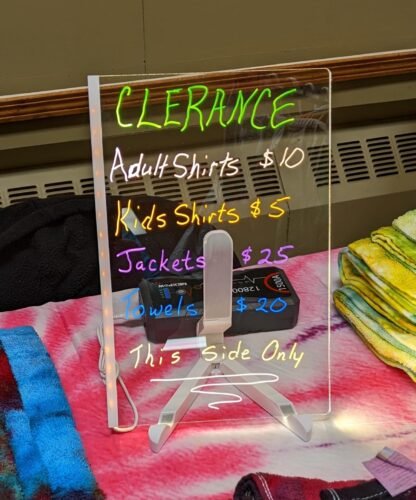 CLERANCE
Adult Shirts $10
Kids Shirts $5
Jackets $25
Towels $20
This Side Only